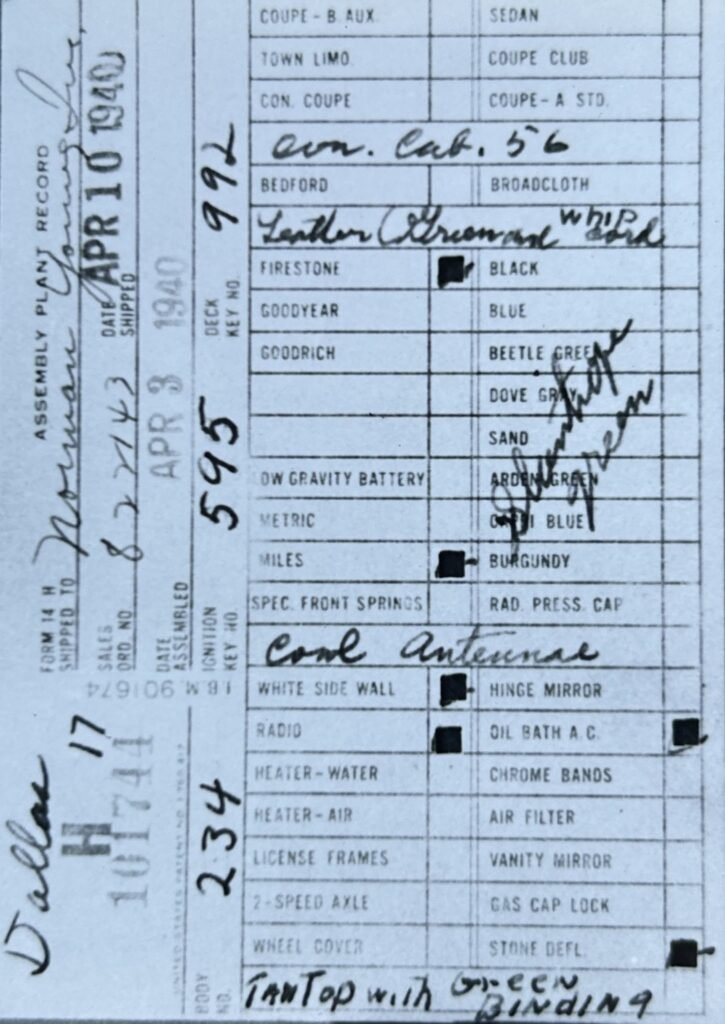 ASSEMBLY PLANT RECORD
FORM 14 H
SHIPPED TO Norman Young Inc.
SALES ORD NO 822143 DATE SHIPPED APR 10 1940
DATE ASSEMBLED APR 3 1940
IGNITION KEY NO. 595 DECK KEY NO. 992
I.B.M. 901674
Dallas
H 17
101744
BODY NO. 234
COUPE-B AUX. SEDAN
TOWN LIMO. COUPE CLUB
CON. COUPE COUPE-A STD.
Con. Cab. 56
BEDFORD BROADCLOTH
Leather (Green and Whip cord
FIRESTONE BLACK
GOODYEAR BLUE
GOODRICH BEETLE GREEN
DOVE GRAY
SAND
LOW GRAVITY BATTERY ARDEN GREEN
METRIC CAPRI BLUE
MILES BURGUNDY
green
SPEC. FRONT SPRINGS RAD. PRESS. CAP
Cowl Antennae
WHITE SIDE WALL HINGE MIRROR
RADIO OIL BATH A.C.
HEATER-WATER CHROME BANDS
HEATER-AIR AIR FILTER
LICENSE FRAMES VANITY MIRROR
2-SPEED AXLE GAS CAP LOCK
WHEEL COVER STONE DEFL.
TAN TOP with GREEN BINDING